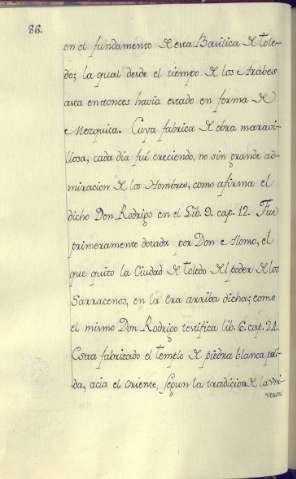 88.
en el fundamento de esta Basilica de Tole-
do; la qual desde el tiempo de los Arabes
asta entonces havia estado en forma de
Mezquita. Cuya fabrica de obra maravi-
llosa, cada dia fué creciendo, no sin grande ad-
miracion de los Hombres, como afirma el
dicho Don Rodrigo en el Lib. 9. cap. 12. Fue
primeramente dotada por Don Alonso, el
que quitó la Ciudad de Toledo del poder de los
Sarracenos, en la Era arriba dicha; como
el mismo Don Rodrigo testifica lib. 6. cap. 24.
Esta fabricado el templo de piedra blanca puli-
da, acia el Oriente, segun la tradicion de la Uni-
versal